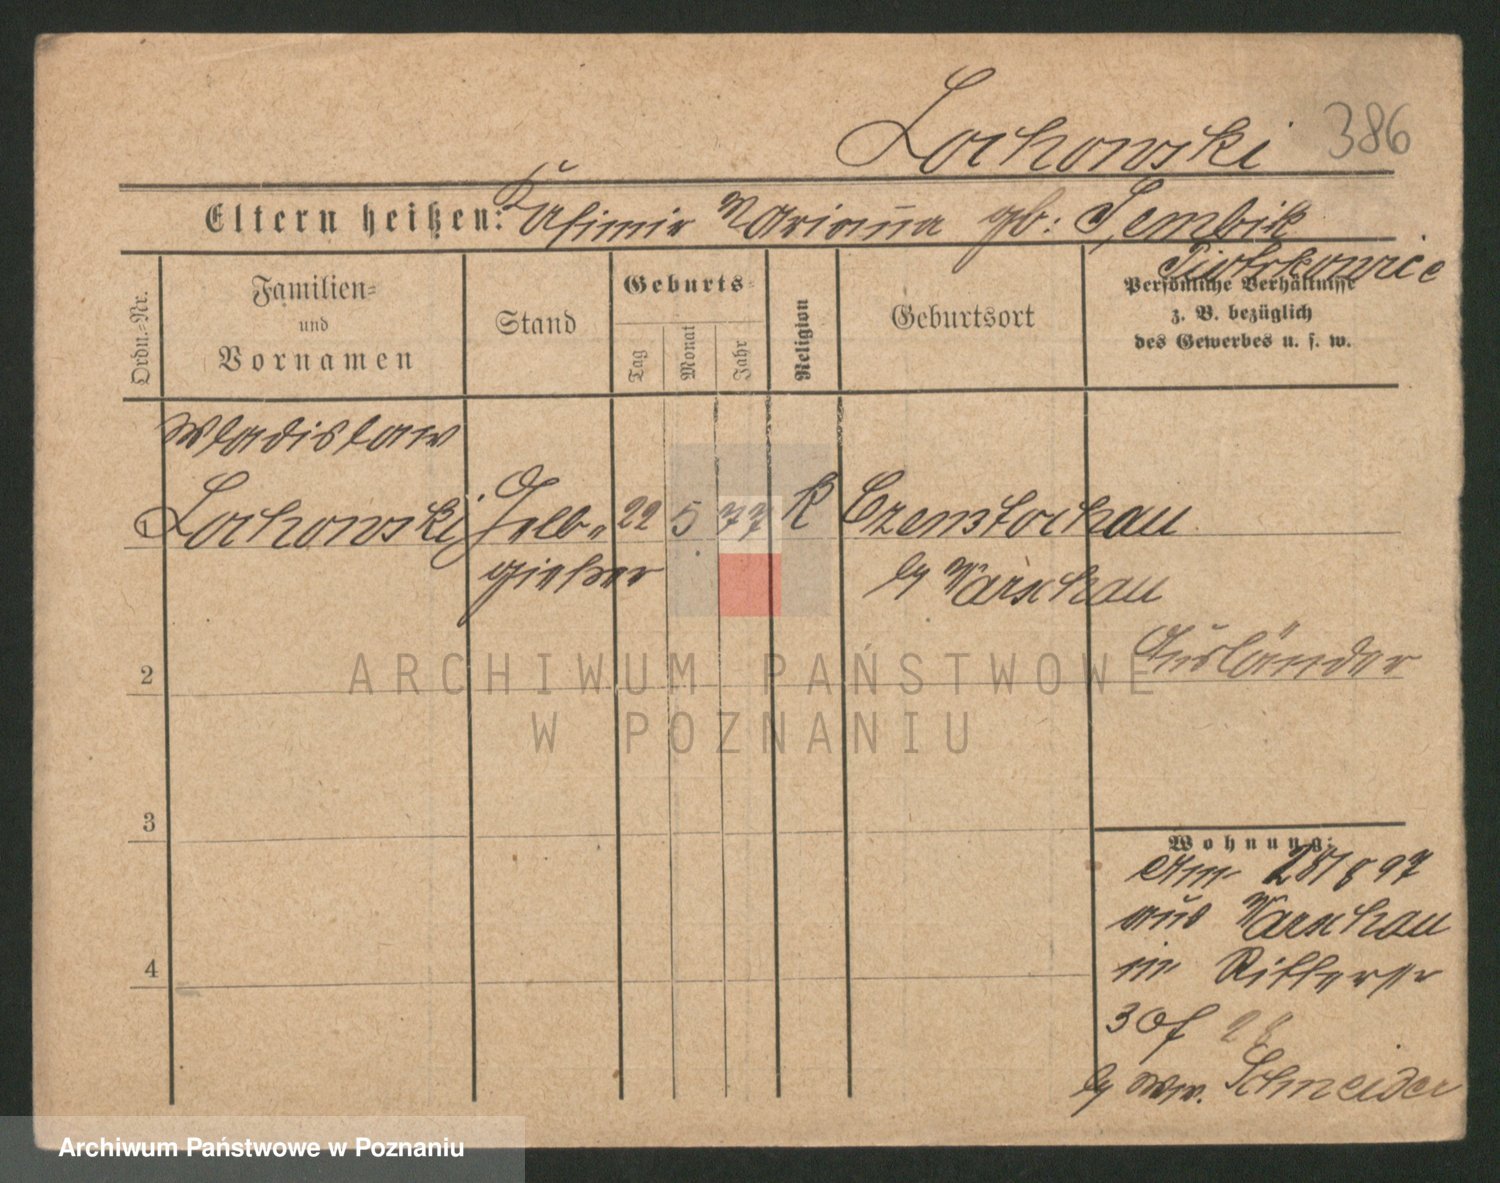 Lochowski 386
Eltern heißen: Kasimir Marianna gb: Sembik
Piotrkowice
Ordn.-Nr.
Familien-
und
Vornamen
Stand
Geburts-
Tag
Monat
Jahr
Religion
Geburtsort
Persönliche Verhältnisse
z. B. bezüglich
des Gewerbes u. s. w.
Wladislaw
1 Lochowski Gelb- 22 5 77 K Czenstochau
gießer by Warschau
Ausländer
2
3
4
Wohnung:
am 28/8 97
aus Warschau
in Ritterstr
30 28
by Ww. Schneider
ARCHIWUM PAŃSTWOWE
W POZNANIU
Archiwum Państwowe w Poznaniu